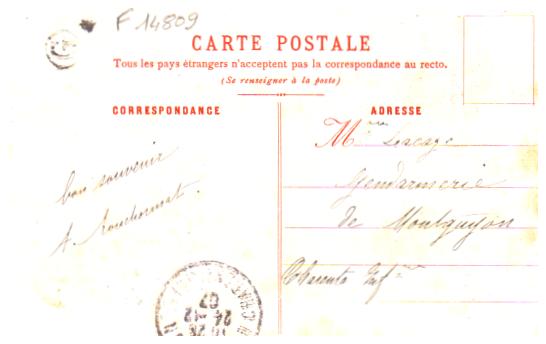 F 14809
CARTE POSTALE
Tous les pays étrangers n'acceptent pas la correspondance au recto.
(Se renseigner à la poste)
CORRESPONDANCE
ADRESSE
bon souvenir
A.
M
Gendarmerie
de Montguyon
Charente Infre
24-12
07